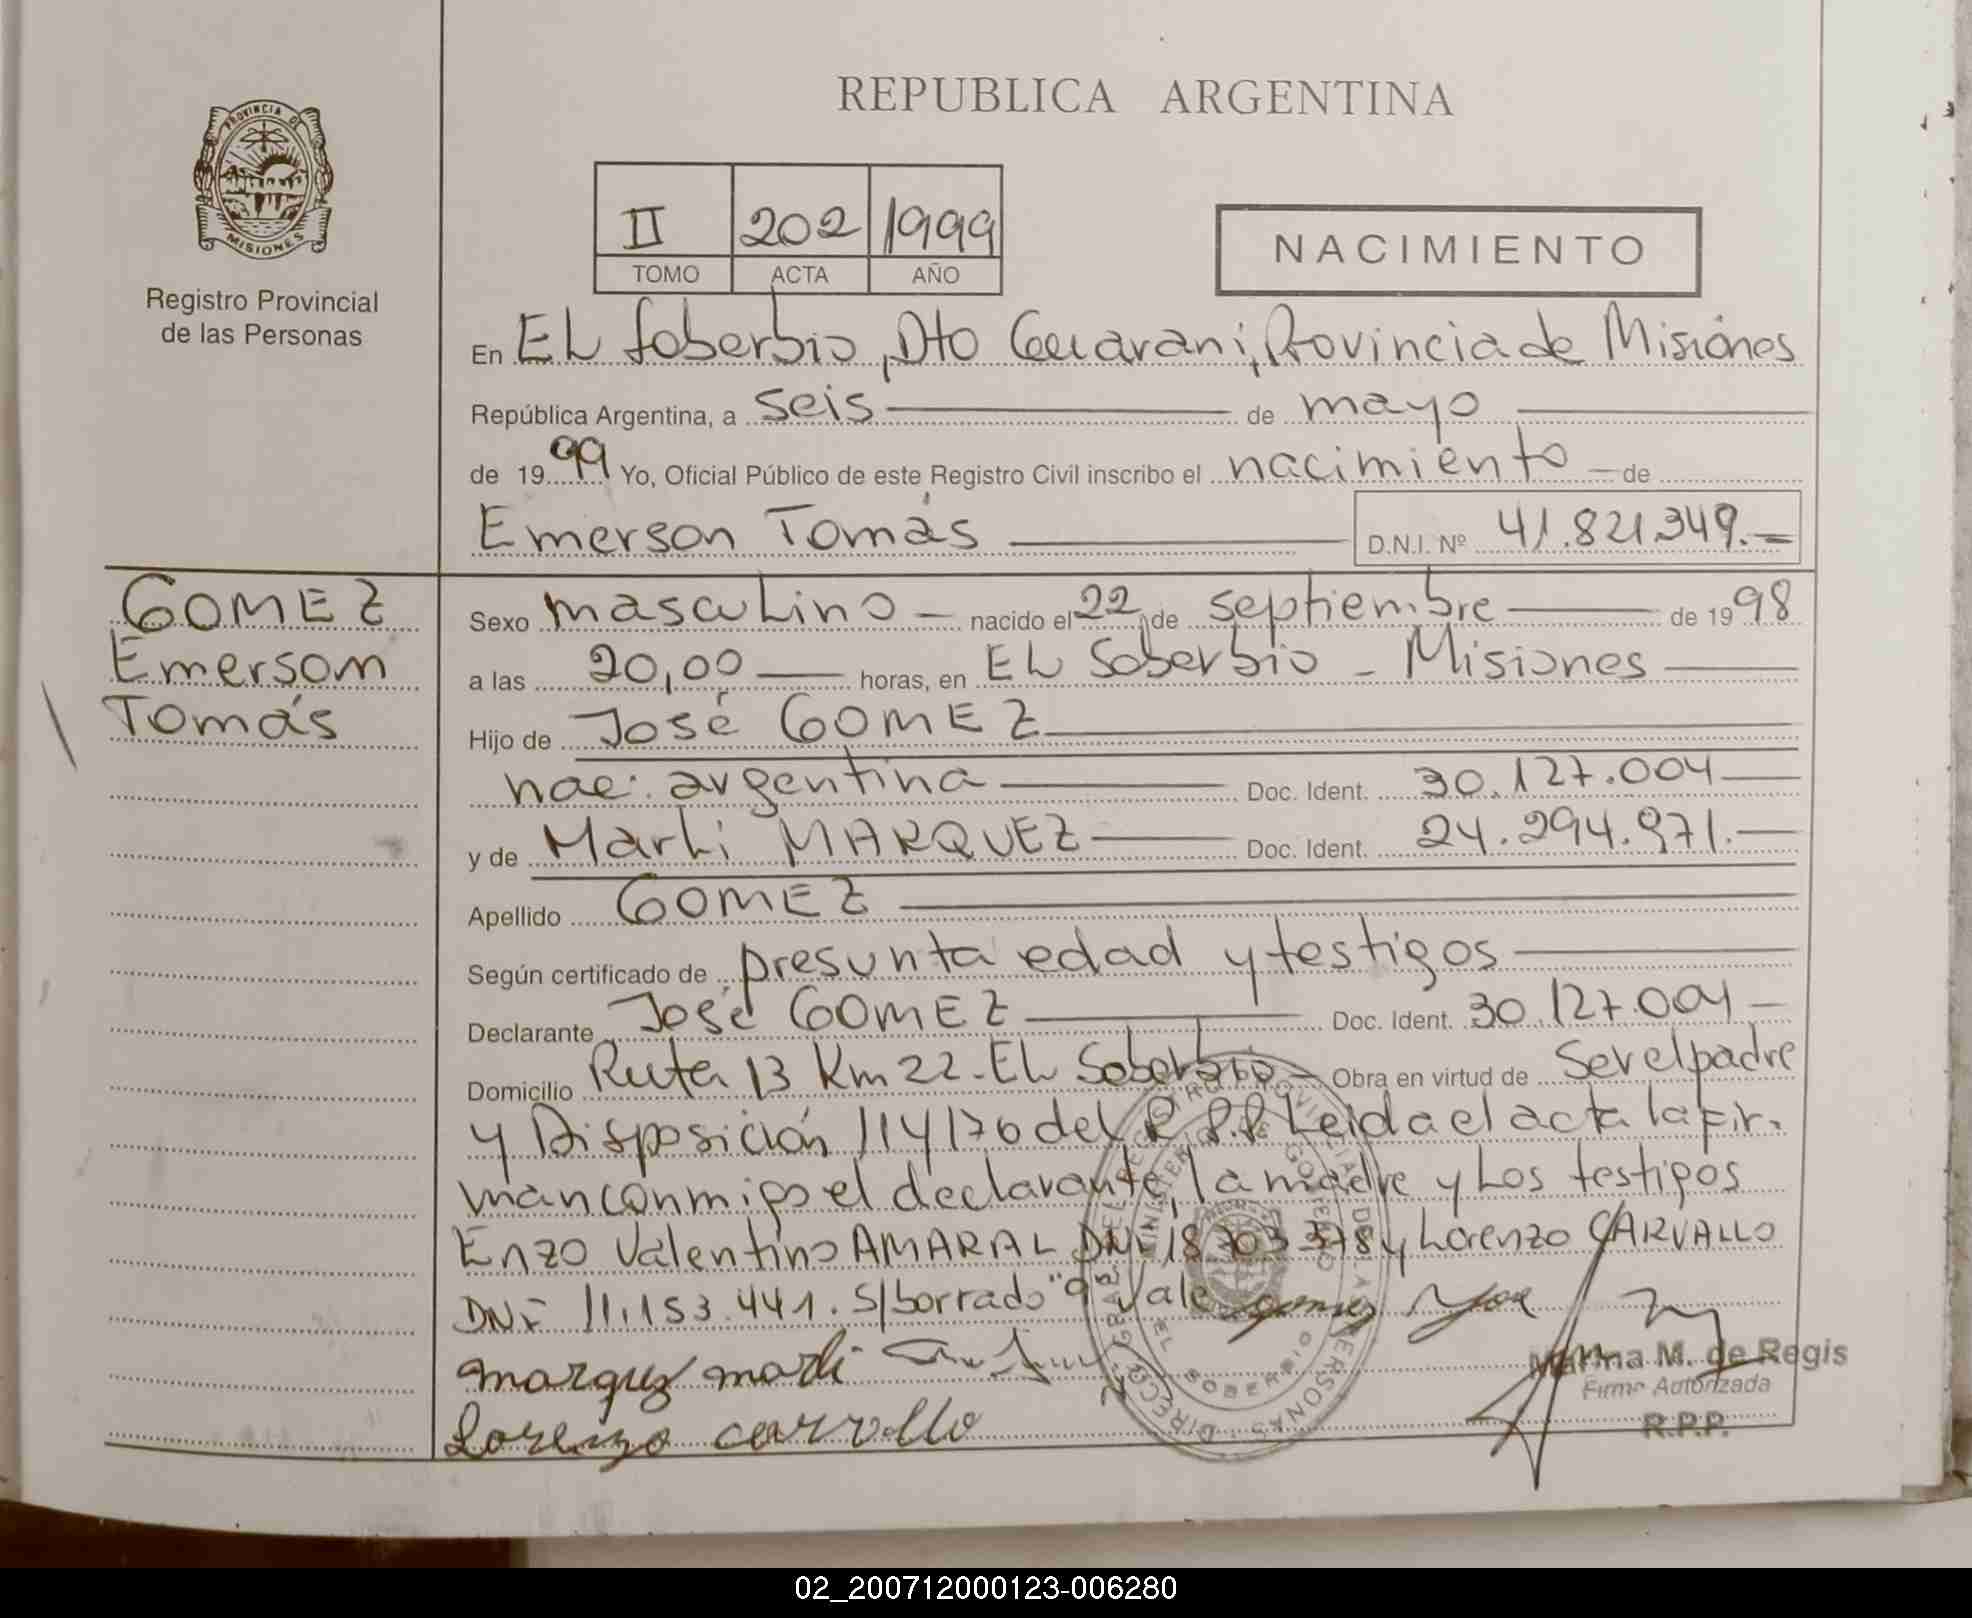 REPUBLICA ARGENTINA
PROVINCIA DE
MISIONES
Registro Provincial
de las Personas
II 202 1999
TOMO ACTA AÑO
NACIMIENTO
En EL Soberbio, Dto Guarani, Provincia de Misiones
República Argentina, a seis de mayo
de 1999 Yo, Oficial Público de este Registro Civil inscribo el nacimiento de
Emerson Tomás D.N.I. Nº 41.821.349.
GOMEZ
Emerson
Tomás
Sexo masculino nacido el 22 de septiembre de 1998
a las 20,00 horas, en EL Soberbio - Misiones
Hijo de José GOMEZ
nac. argentina Doc. Ident. 30.127.004
y de Marli MARQUEZ Doc. Ident. 24.294.971.
Apellido GOMEZ
Según certificado de presunta edad y testigos
Declarante José GOMEZ Doc. Ident. 30.127.004
Domicilio Ruta 13 Km 22 - EL Soberbio Obra en virtud de Ser el padre
y Disposición 114/76 del R.P.P. Leida el acta la fir-
man conmigo el declarante, la madre y Los testigos
Enzo Valentino AMARAL DNI 18.703.378 y Lorenzo CARVALLO
DNI 11.153.441. S/borrado "9" Vale
gomez José
marquez marli
Lorenzo carvallo
Marina M. de Regis
Firma Autorizada
R.P.P.
02_200712000123-006280